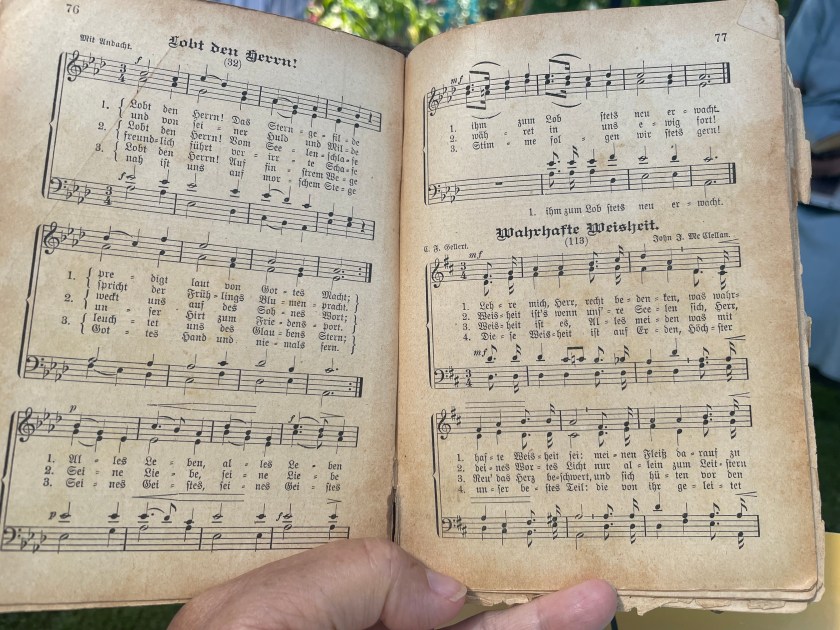 76
Mit Andacht.
Lobt den Herrn!
(32)
f
1. { Lobt den Herrn! Das Stern = ge = fil = de
und von sei = ner Huld und Mil = de
2. { Lobt den Herrn! Vom See = len = schla = fe
freund = lich führt ver = irr = te Scha = fe
3. { Lobt den Herrn! Auf fin = strem We = ge
nah ist uns auf mor = schem Ste = ge
f
1. { pre = digt laut von Got = tes Macht; }
spricht der Früh = lings = Blu = men = pracht. }
2. { weckt uns auf des Soh = nes Wort; }
un = ser Hirt zum Frie = dens = port. }
3. { leuch = tet uns des Glau = bens Stern; }
Got = tes Hand und nie = mals fern. }
p
f
1. Al = les Le = ben, al = les Le = ben
2. Sei = ne Lie = be, sei = ne Lie = be
3. Sei = nes Gei = stes, sei = nes Gei = stes
p
f
77
mf
1. ihm zum Lob stets neu er = wacht.
2. wäh = ret in uns e = wig fort!
3. Stim = me fol = gen wir stets gern!
1. ihm zum Lob stets neu er = wacht.
Wahrhafte Weisheit.
C. F. Gellert.
(113)
John J. Mc Clellan.
mf
1. Leh = re mich, Herr, recht be = den = ken, was wahr =
2. Weis = heit ist's wenn uns' = re See = len sich, Herr,
3. Weis = heit ist es, Al = les mei = den was mit
4. Die = se Weis = heit ist auf Er = den, Höch = ster
mf
1. haf = te Weis = heit sei: mei = nen Fleiß da = rauf zu
2. dei = nes Wor = tes Licht nur al = lein zum Leit = stern
3. Reu' das Herz be = schwert, und sich hü = ten vor den
4. un = ser be = stes Teil: die von ihr ge = lei = tet